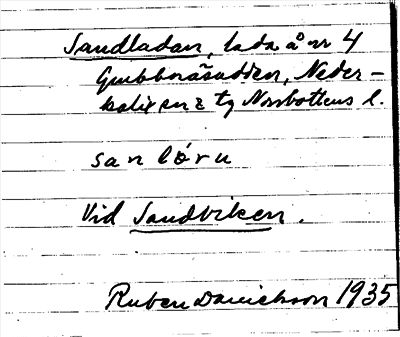 Sandladan, lada å nr 4
Gubbnäsudden, Neder-
kalix sn o tg Norrbottens l.
san lóru
Vid Sandviken.
Ruben Danielsson 1935